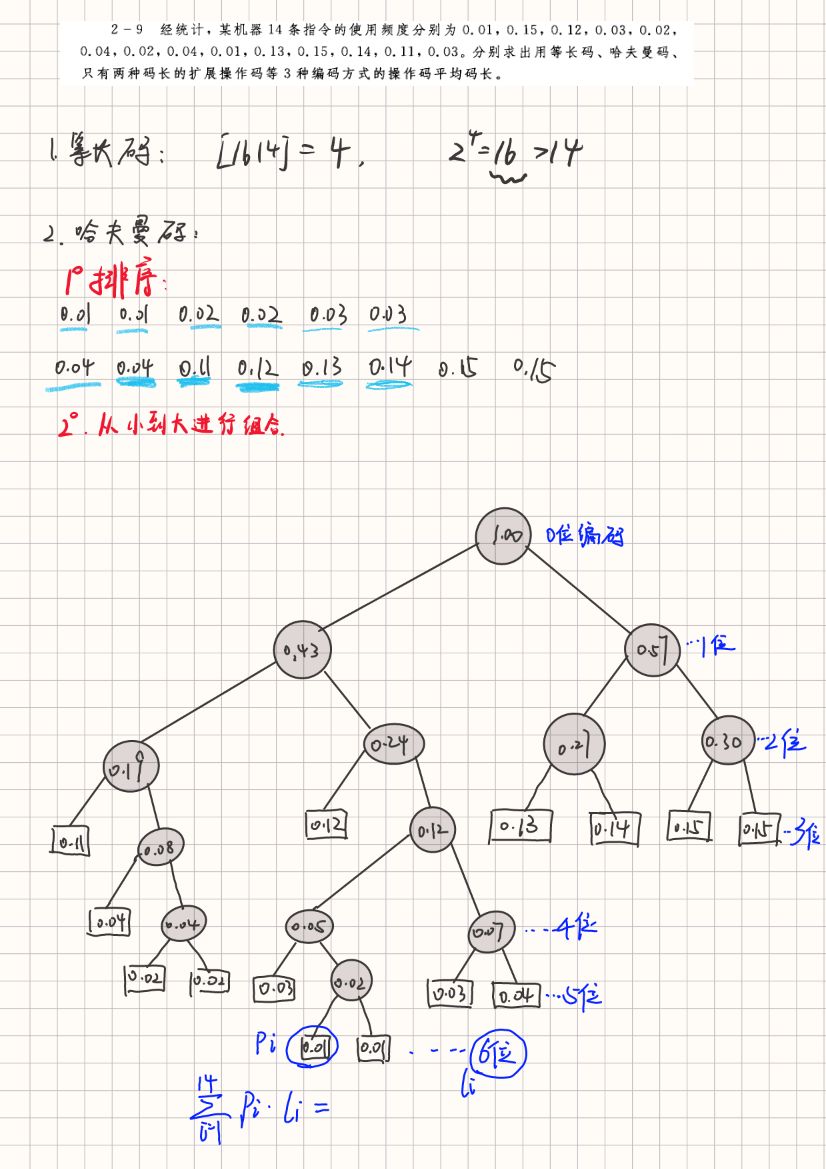 2-9 经统计,某机器14条指令的使用频度分别为0.01,0.15,0.12,0.03,0.02,
0.04,0.02,0.04,0.01,0.13,0.15,0.14,0.11,0.03。分别求出用等长码、哈夫曼码、
只有两种码长的扩展操作码等3种编码方式的操作码平均码长。
1.等长码: [1b14]=4, 2^4=16>14
2.哈夫曼码:
1°排序:
0.01 0.01 0.02 0.02 0.03 0.03
0.04 0.04 0.11 0.12 0.13 0.14 0.15 0.15
2°.从小到大进行组合.
1.00 0位编码
0.43 0.57 ...1位
0.19 0.24 0.27 0.30 ...2位
0.11 0.08 0.12 0.12 0.13 0.14 0.15 0.15 ...3位
0.04 0.04 0.05 0.07 ....4位
0.02 0.02 0.03 0.02 0.03 0.04 ...5位
Pi 0.01 0.01 ..... 6位
li
14
∑ Pi·li=
i=1